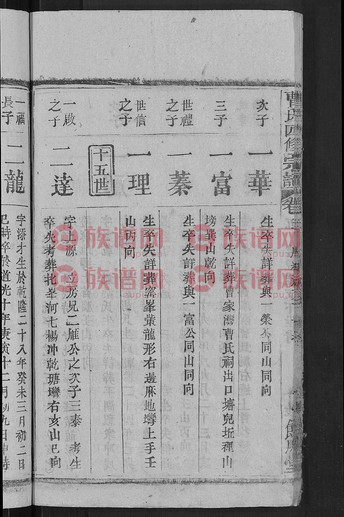 曹氏四修宗譜
次子
一華
生卒失詳葬與一榮公同山同向
三子
一富
生卒失詳葬曹家灣曹氏祠出口塘兒坵裡山
塝巽山乾向
世禮之子
一蓁
生卒失詳葬與一富公同山同向
世信之子
一理
生卒失詳葬窩峯葉龍形右邊麻地塝上手壬
山丙向
十五世
一啟之子
二達
字上源 立房兄二雁公之次子三泰 考生
卒失考葬北峯河七楊冲乾塘灣右亥山巳向
一祖長子
二龍
字深才生於乾隆二十八年癸未三月初二日
巳時卒於道光十年庚寅十二月初九日
族谱网